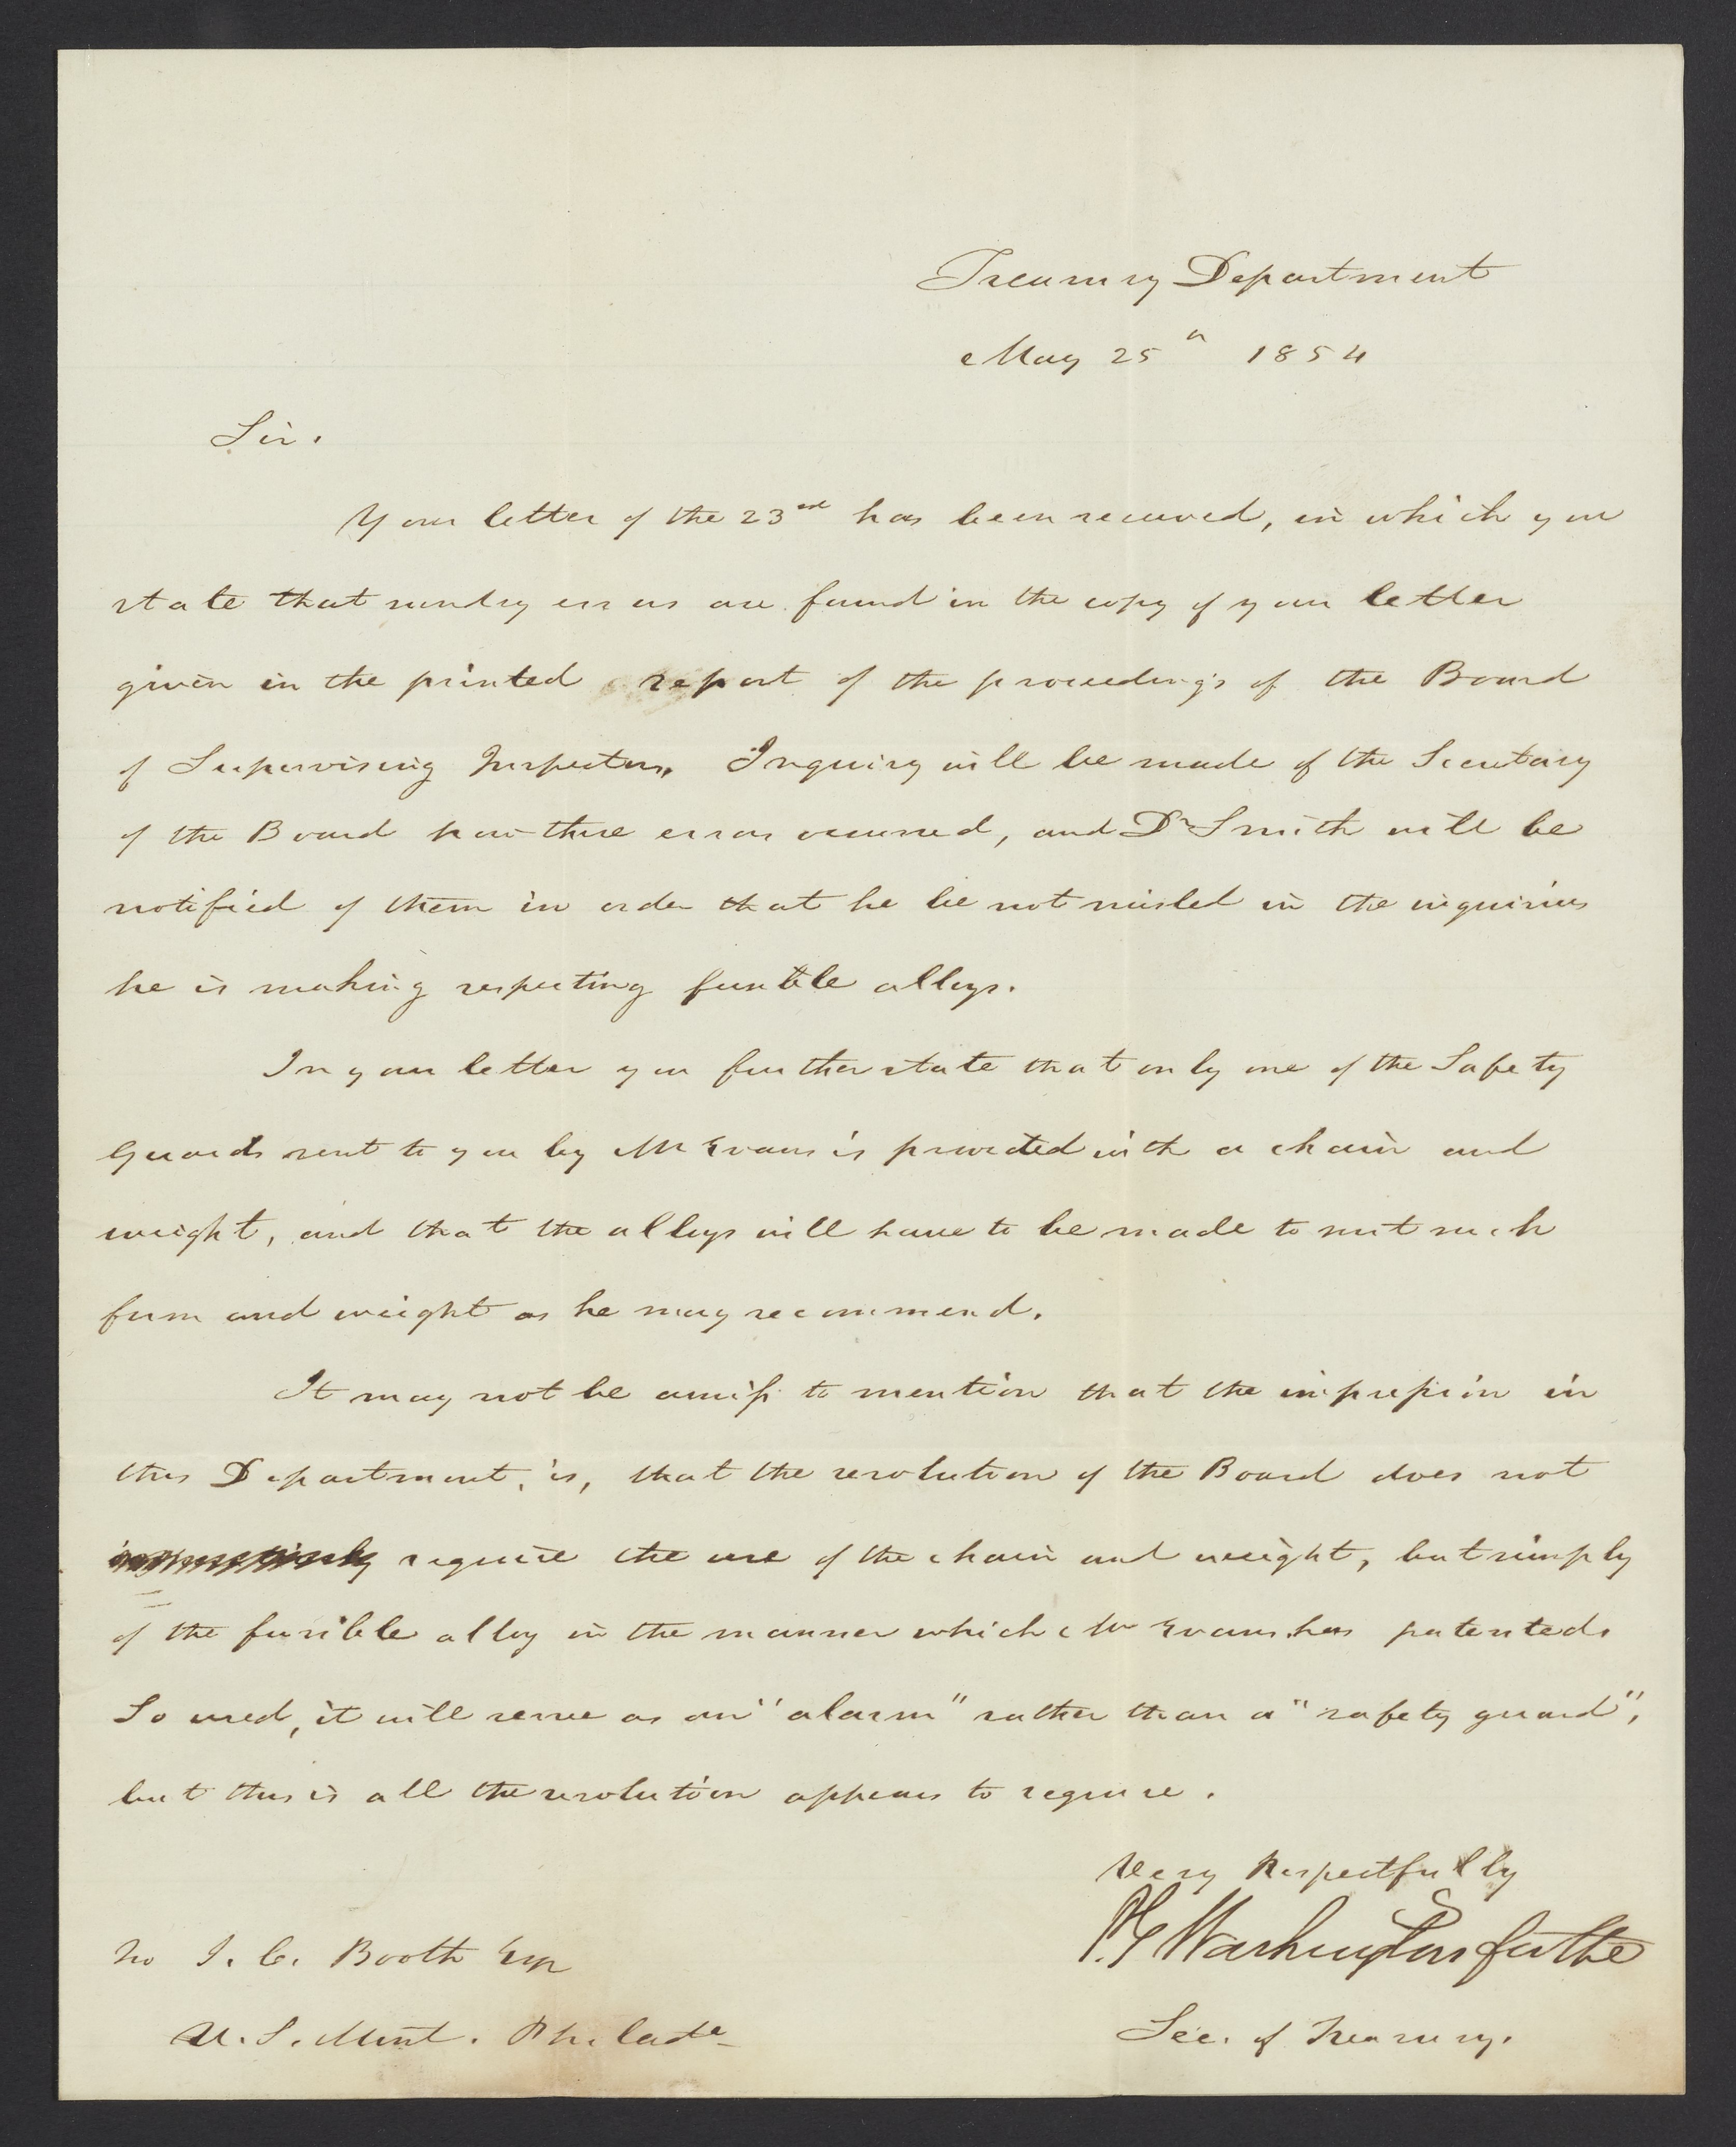 Treasury Department
May 25th 1854
Sir.
Your letter of the 23rd has been received, in which you
state that sundry errors are found in the copy of your letter
given in the printed report of the proceedings of the Board
of Supervising Inspectors. Inquiry will be made of the Secretary
of the Board how these errors occurred, and Dr Smith will be
notified of them in order that he be not misled in the inquiries
he is making respecting fusible alloys.
In your letter you further state that only one of the Safety
Guards sent to you by Mr Evans is provided with a chain and
weight, and that the alloys will have to be made to suit such
form and weight as he may recommend.
It may not be amiss to mention that the impression in
this Department, is, that the resolution of the Board does not
require the use of the chain and weight, but simply
of the fusible alloy in the manner which Mr Evans has patented.
So used, it will serve as an "alarm" rather than a "safety guard",
but this is all the resolution appears to require.
Very Respectfully
P. G. Washington for the
Sec. of Treasury.
To J. C. Booth Esq
U. S. Mint. Philada